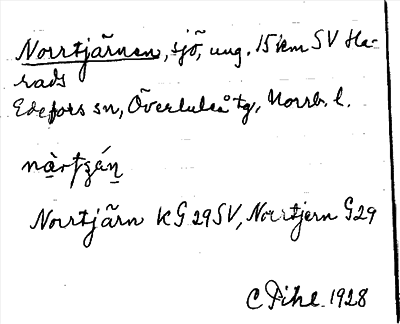 Norrtjärnen, sjö, ung. 15 km SV Ha-
rads
Edefors sn, Överluleå tg, Norrb. l.
nàrtʂén
Norrtjärn KG 29 SV, Norrtjern G 29
C Pihl. 1928